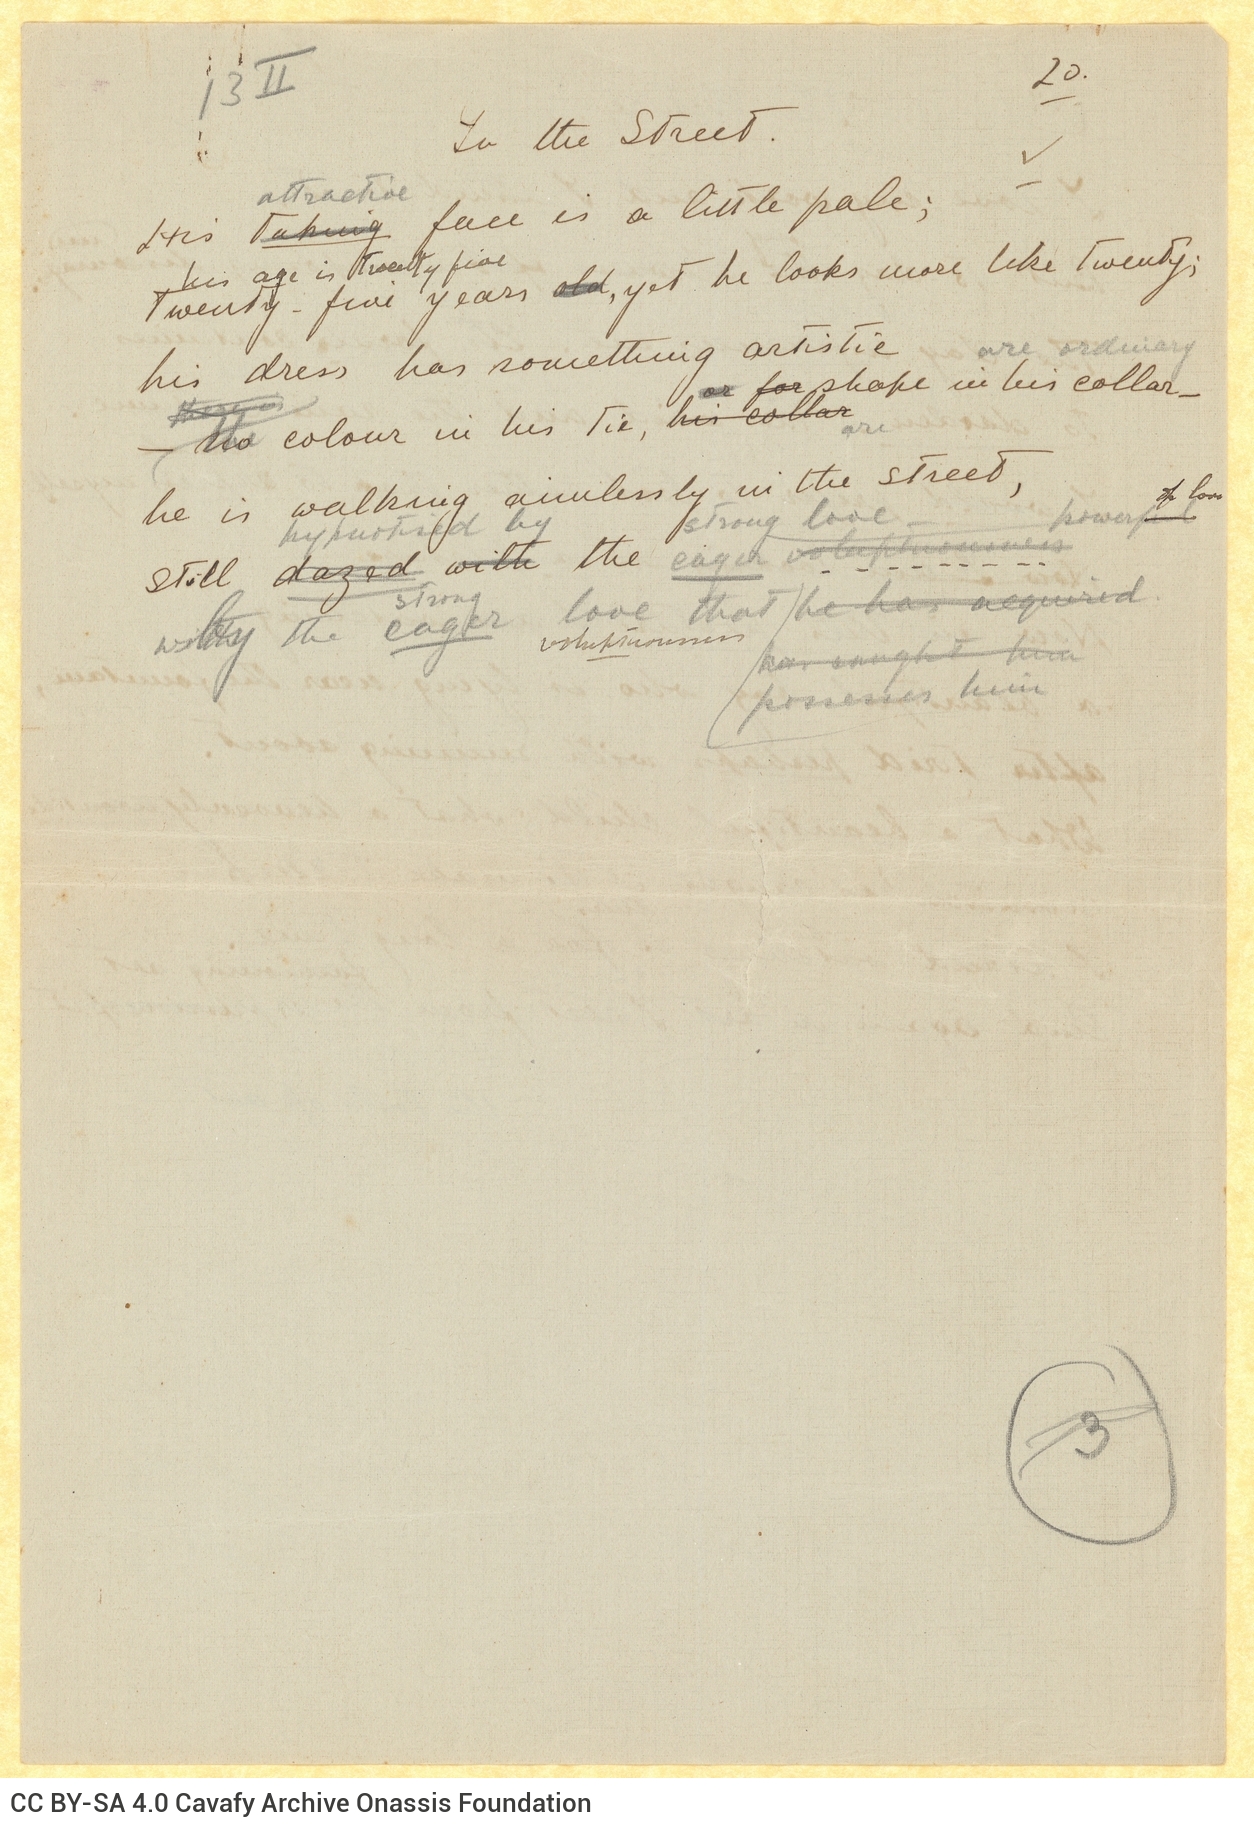 13 II
20.
In the Street.
attractive
His taking face is a little pale;
his age is twenty five
twenty-five years old, yet he looks more like twenty;
his dress has something artistic
are ordinary
or for shape in his collar—
— no colour in his tie, his collar
are
he is walking aimlessly in the street,
of love
hypnotised by strong love — powerful
still dazed with the eager voluptuousness
strong
by the eager love that he has acquired.
voluptuousness
has caught him
possesses him
3
CC BY-SA 4.0 Cavafy Archive Onassis Foundation